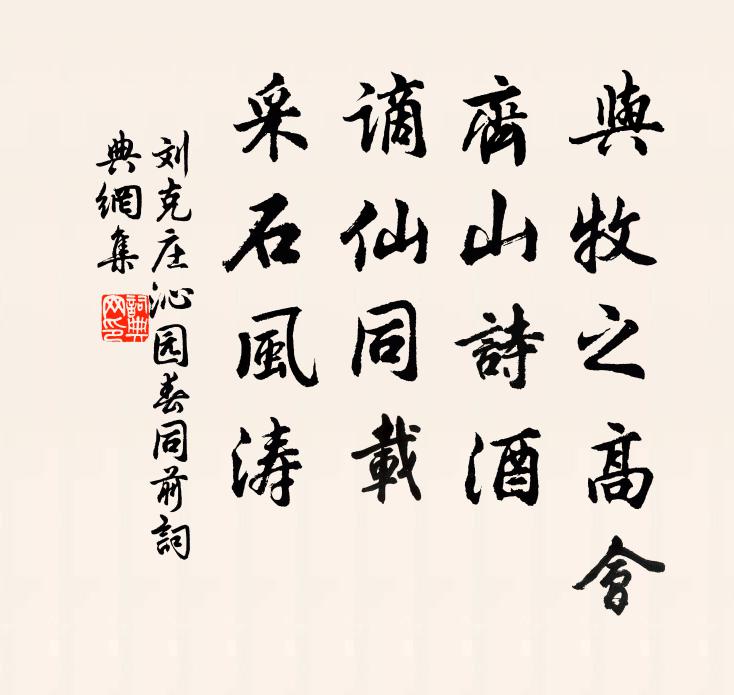 與牧之高會
齊山詩酒
謫仙同載
采石風涛
刘克庄沁园春同前詞
典網集
詞典
网印